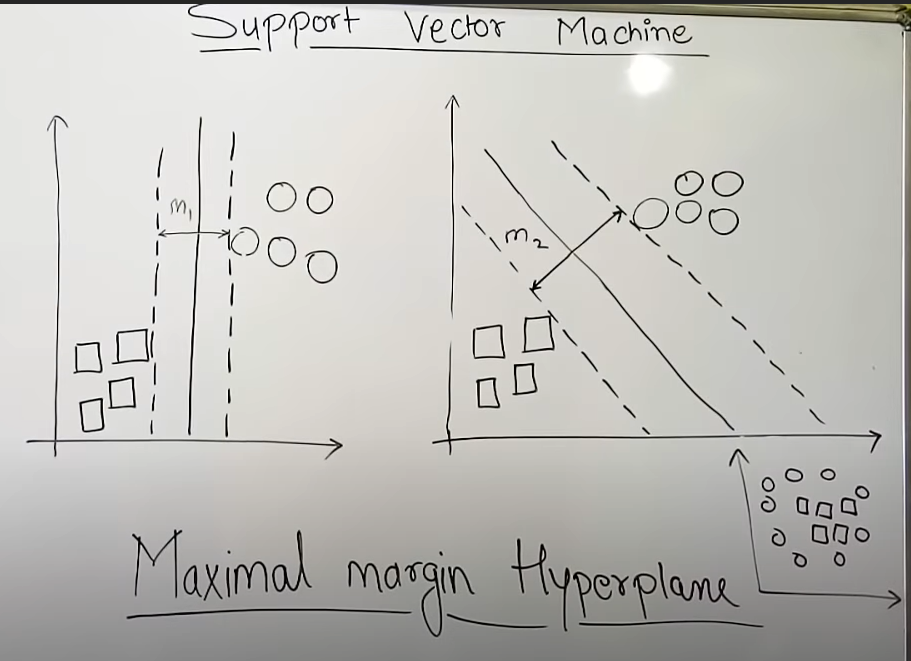 Support Vector Machine
m₁
m₂
Maximal margin Hyperplane